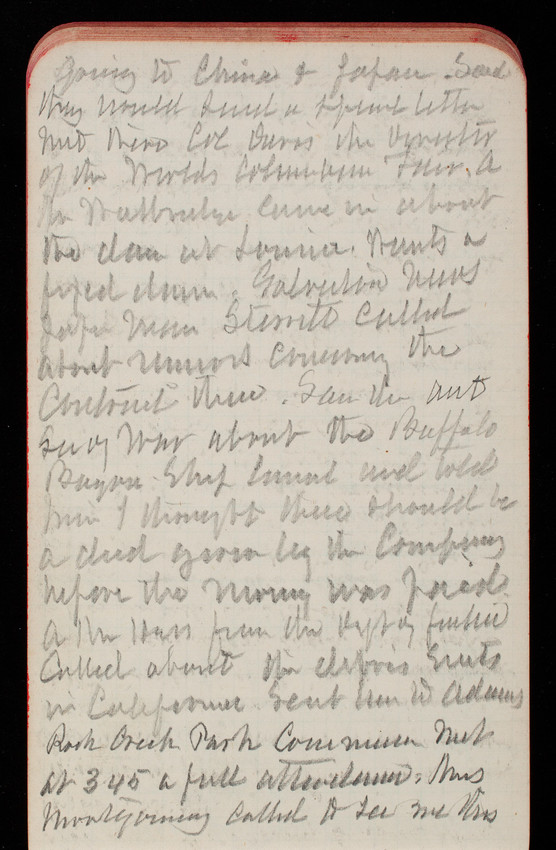 Going to China & Japan. Said
they would send a special letter
Met there Col Davis the Director
of the Worlds Columbian Fair. A
Mr Walbridge came in about
the dam at Louisa. Wants a
fixed dam. Galveston News
paper man Sterrett called
about rumors concerning the
Contract there. Saw the Ast
Secy War about the Buffalo
Bayou Ship Canal and told
him I thought there should be
a deed given by the Company
before the money was paid.
A Mr from the Dept of Justice
Called about the debris Suits
in California. Sent him to Adams
Rock Creek Park Commission Met
at 345 a full attendance. Mrs
Montgomery called to see me this